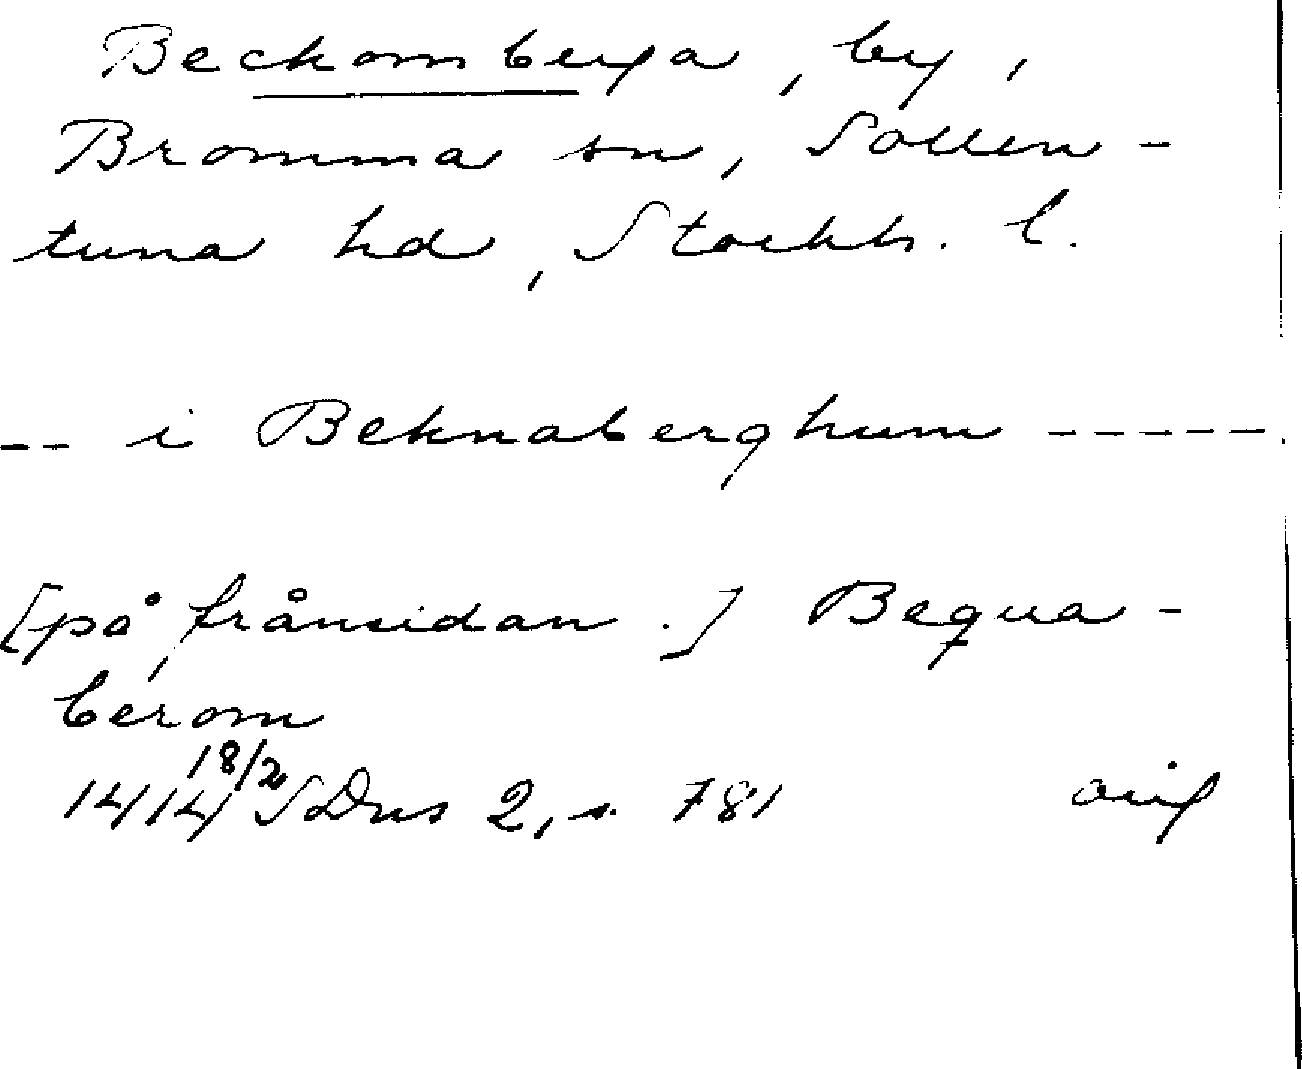 Beckomberga, by,
Bromma sn, Sollen-
tuna hd, Stockh. l.
-- i Beknaberghum -----
[på frånsidan.] Bequa-
berom
1414 18/2 SDns 2, s. 781 orig